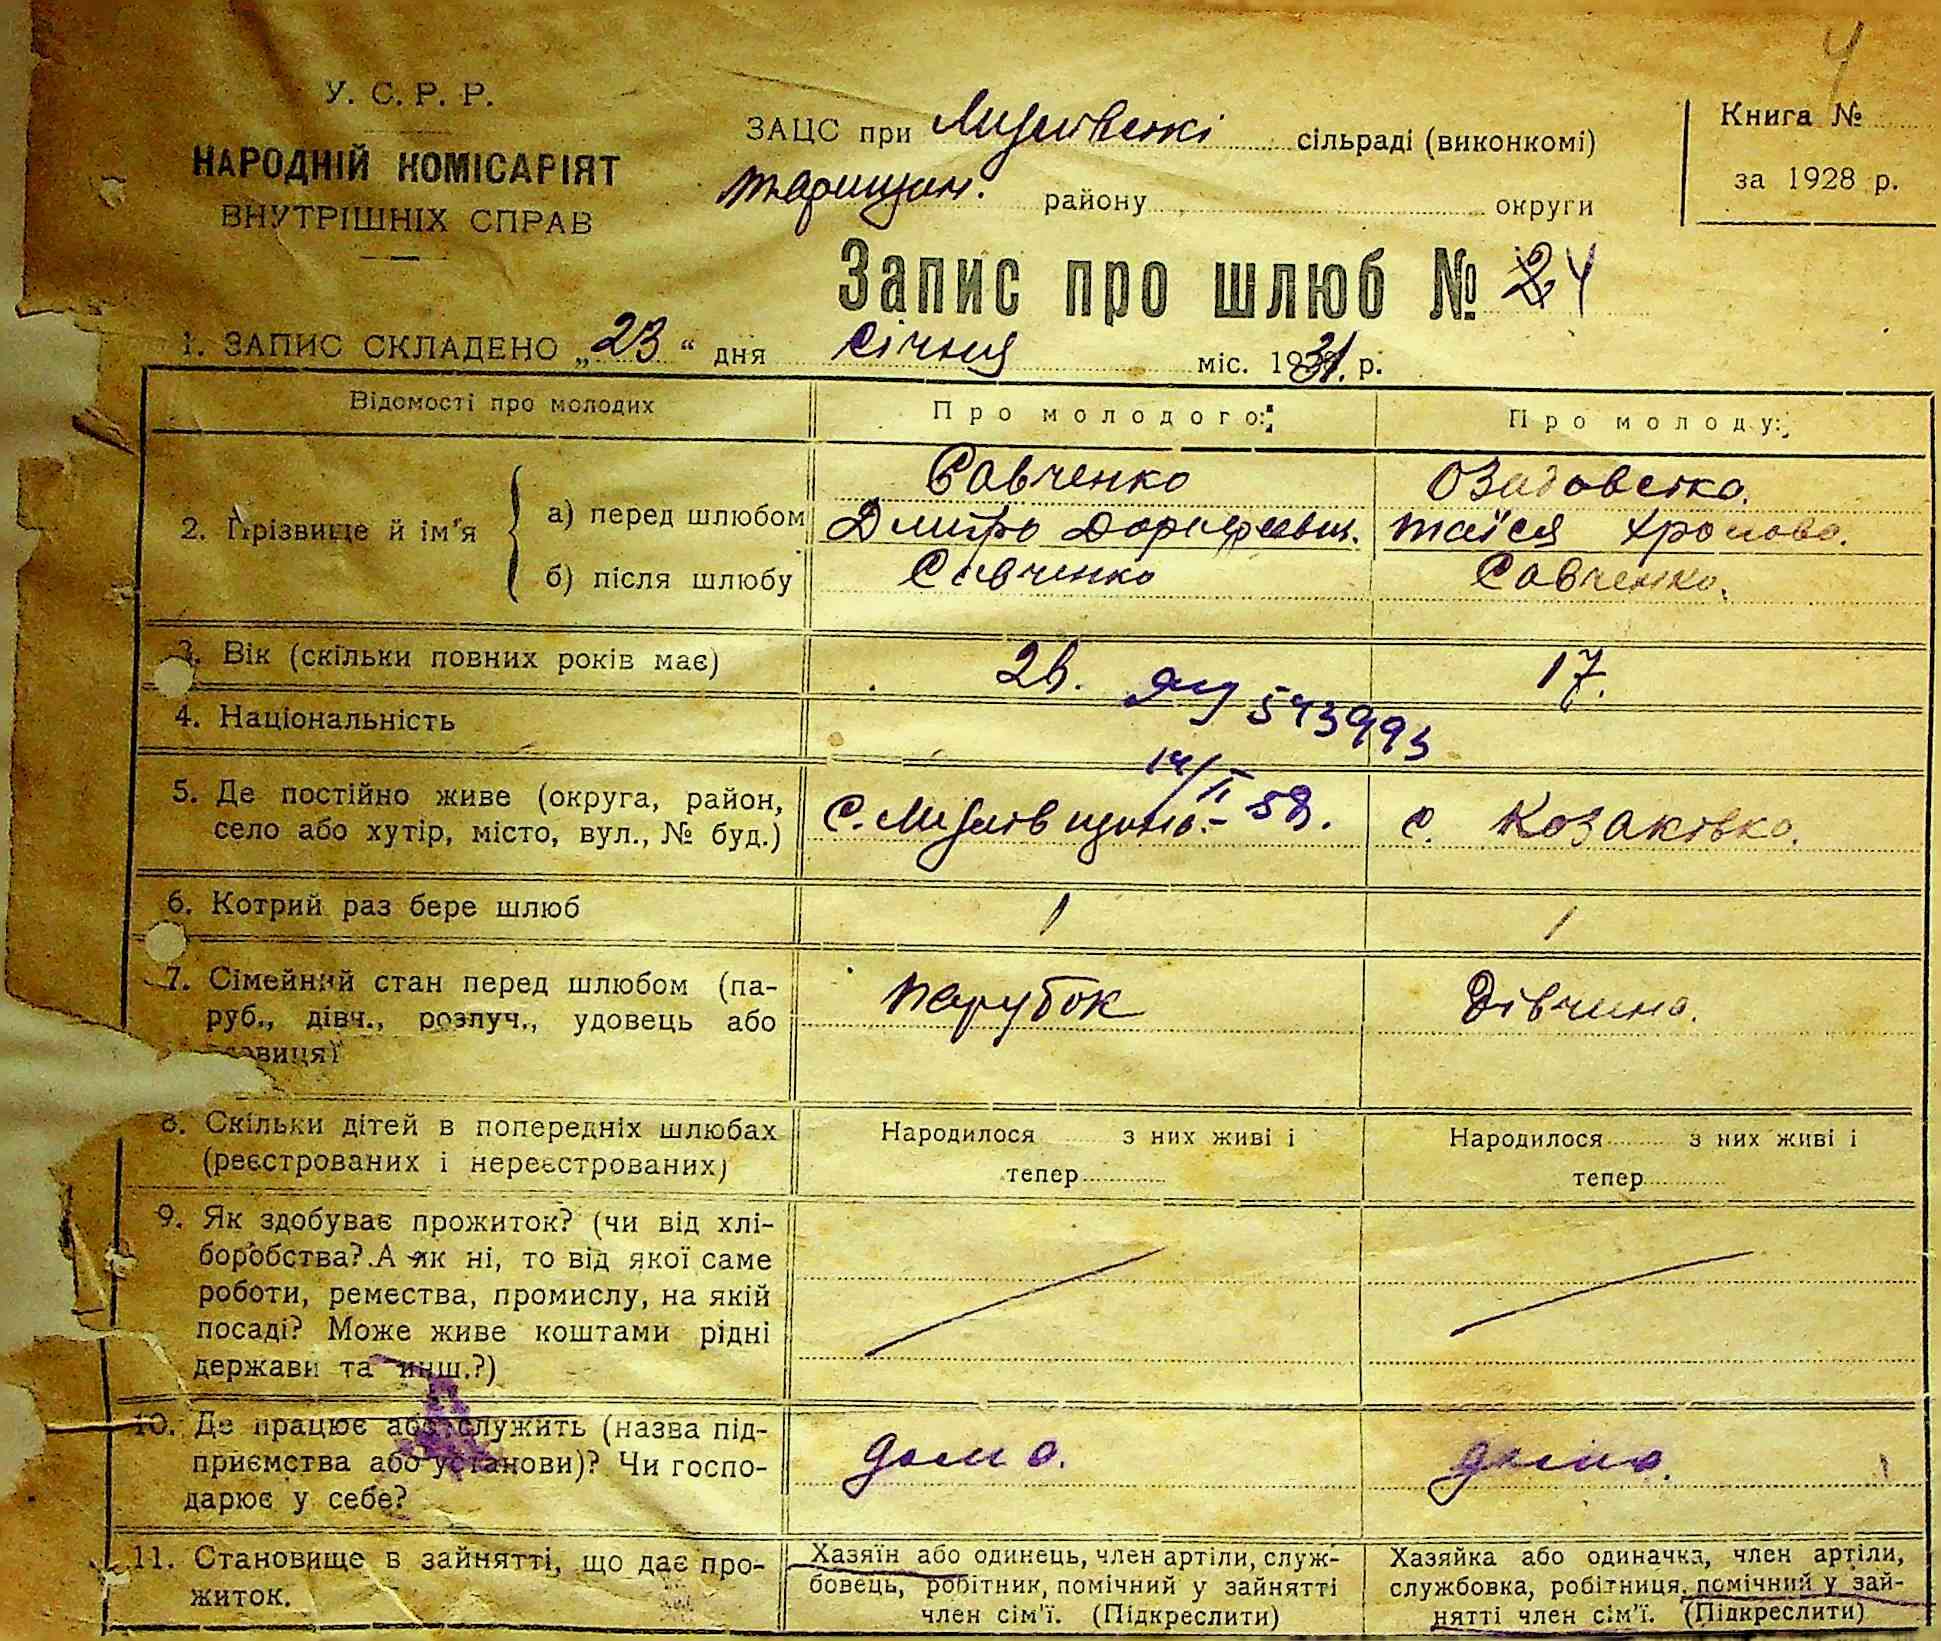 4
У. С. Р. Р.
НАРОДНІЙ КОМІСАРІЯТ
ВНУТРІШНІХ СПРАВ
ЗАЦС при сільраді (виконкомі)
Таращан. району округи
Книга №
за 1928 р.
Запис про шлюб № 24
1. ЗАПИС СКЛАДЕНО „23“ дня січня міс. 1931 р.
Відомості про молодих
Про молодого:
Про молоду:
2. Прізвище й ім'я
а) перед шлюбом
Савченко
Дмитро
Таїся
б) після шлюбу
Савченко
Савченко.
3. Вік (скільки повних років має)
17.
4. Національність
543993
14/II 58.
5. Де постійно живе (округа, район,
село або хутір, місто, вул., № буд.)
с. Козаківка.
6. Котрий раз бере шлюб
1
1
7. Сімейний стан перед шлюбом (па-
руб., дівч., розлуч., удовець або
Парубок
Дівчина.
8. Скільки дітей в попередніх шлюбах
(реєстрованих і нереєстрованих)
Народилося з них живі і
тепер
Народилося з них живі і
тепер
9. Як здобуває прожиток? (чи від хлі-
боробства? А як ні, то від якої саме
роботи, ремества, промислу, на якій
посаді? Може живе коштами рідні
держави та инш.?)
10. Де працює або служить (назва під-
приємства або установи)? Чи госпо-
дарює у себе?
дома.
дома.
11. Становище в зайнятті, що дає про-
житок.
Хазяїн або одинець, член артіли, служ-
бовець, робітник, помічний у зайнятті
член сім'ї. (Підкреслити)
Хазяйка або одиначка, член артіли,
службовка, робітниця, помічний у зай-
нятті член сім'ї. (Підкреслити)